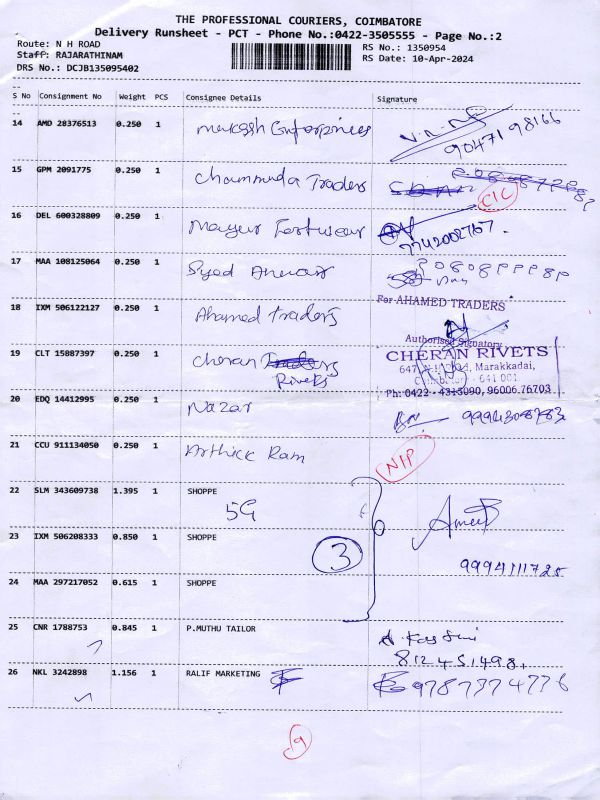 THE PROFESSIONAL COURIERS, COIMBATORE
Delivery Runsheet - PCT - Phone No.:0422-3505555 - Page No.:2
Route: N H ROAD
Staff: RAJARATHINAM
DRS No.: DCJB135095402
RS No.: 1350954
RS Date: 10-Apr-2024
S No Consignment No Weight PCS Consignee Details Signature
14 AMD 28376513 0.250 1 Mukesh Enterprises
9047198166
15 GPM 2091775 0.250 1 Chammunda Traders
CIC
16 DEL 600328809 0.250 1 Mayur Footwear
7742002767.
17 MAA 108125064 0.250 1 Syed Anwar
18 IXM 506122127 0.250 1 Ahamed traders
For AHAMED TRADERS
Authorised Signatory
19 CLT 15887397 0.250 1 Cheran Traders
Rivets
CHERAN RIVETS
Marakkadai,
Coimbatore - 641 001
Ph: 0422 - 4313090, 96006 76703
20 EDQ 14412995 0.250 1 Nazar
21 CCU 911134050 0.250 1 Arthick Ram
NIP
22 SLM 343609738 1.395 1 SHOPPE
5G
23 IXM 506208333 0.850 1 SHOPPE
3
9994111725
24 MAA 297217052 0.615 1 SHOPPE
25 CNR 1788753 0.845 1 P.MUTHU TAILOR
26 NKL 3242898 1.156 1 RALIF MARKETING
9787374776
9